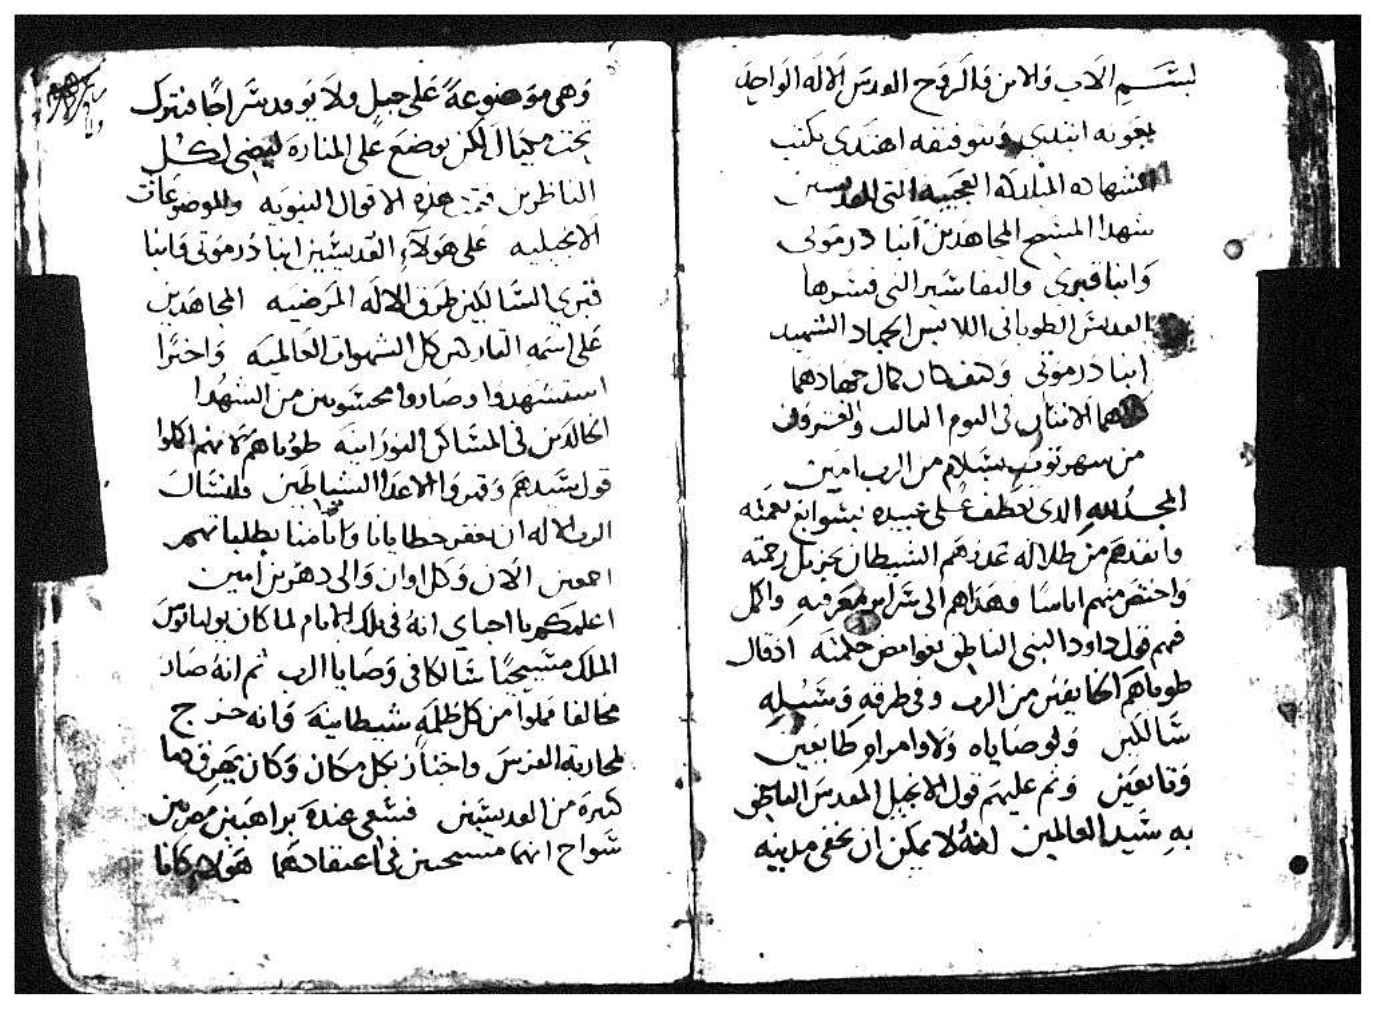 بسم الاب والابن والروح القدس الاله الواحد
بمعونه ابتدي وبتوفيقه اهتدي بكتب
الشهاده المباركه العجيبه التي للقديسين
شهدا المسيح المجاهدين انبا درموتى
وانبا قيرى والتفاشير التي فسرها
القديس الطوباني اللابس الجهاد الشهيد
انبا درموتى وكيف كان كمال جهادهما
هما الاتنان في اليوم التالت والعشرون
من شهر توت بسلام من الرب امين
المجد لله الدي تعطف على عبيده بسوابغ نعمته
وانقدهم من طلاله عدوهم الشيطان بجزيل رحمته
واختص منهم اناسا وهداهم الى شراير معرفته واكمل
فيهم قول داود النبي الناطق بغوامض حكمته اذ قال
طوباهم الخايفين من الرب وفي طرقه وسبله
سالكين ولوصاياه ولاوامراه طايعين
وتابعين وتم عليهم قول الانجيل المقدس الناطق
به سيد العالمين لانه لا يمكن ان تخفى مدينه
وهي موضوعة على جبل ولا يوقد سراجا فيترك
تحت مكيال لكن يوضع على المناره ليضي لكل
الناظرين فتمت هذه الاقوال النبويه والموضوعات
الانجيليه على هولاء القديسين انبا درموتى وانبا
قيرى السالكين طرق الاله المرضيه المجاهدين
على اسمه التاركين كل الشهوات العالميه واخيرا
استشهدوا وصاروا محسوبين من الشهدا
الخالدين في المساكن النورانيه طوباهم لانهم اكملوا
قول سيدهم وقهروا الاعدا الشياطين ولنسال
الرب الاله ان يغفر خطايانا واتامنا بطلباتهم
اجمعين الان وكل اوان والى دهر الداهرين امين
اعلمكم يا احباي انه في تلك الايام لما كان يوليانوس
الملك مسيحيا سالكا في وصايا الرب ثم انه صار
مخالفا مملوا من كل ظلمه شيطانيه وانه خرج
لمحاربة الفرس واجتاز بكل مكان وكان يهرق دما
كثيره من القديسين فسعي عنده براهبين مصريين
سواح انهما مسيحين في اعتقادهما هولاء كانا